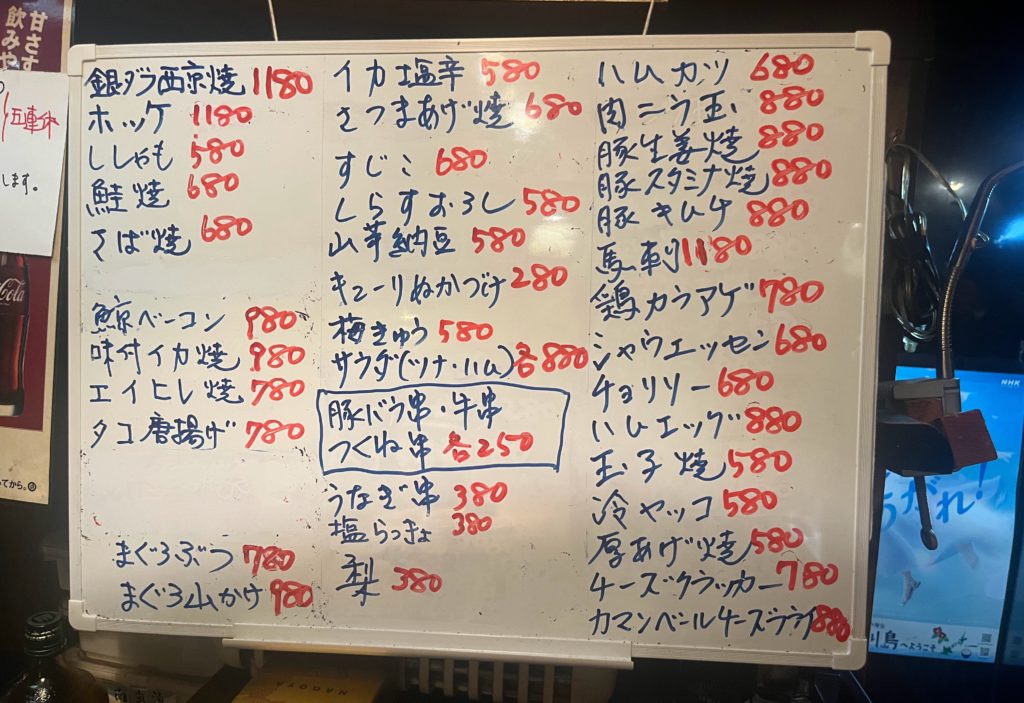 甘さす
飲みや
五連休
します。
Cola
ってから。
銀ダラ西京焼 1180
ホッケ 1180
ししゃも 580
鮭焼 680
さば焼 680
鯨ベーコン 980
味付イカ焼 980
エイヒレ焼 780
タコ唐揚げ 780
まぐろぶつ 780
まぐろ山かけ 980
イカ塩辛 580
さつまあげ焼 680
すじこ 680
しらすおろし 580
山芋納豆 580
キューリぬかづけ 280
梅きゅう 580
サラダ(ツナ・ハム)各880
豚バラ串・牛串
つくね串 各250
うなぎ串 380
塩らっきょ 380
梨 380
ハムカツ 680
肉ニラ玉 880
豚生姜焼 880
豚スタミナ焼 880
豚キムチ 880
馬刺 1180
鶏カラアゲ 780
シャウエッセン 680
チョリソー 680
ハムエッグ 880
玉子焼 580
冷ヤッコ 580
厚あげ焼 580
チーズクラッカー 780
カマンベールチーズフライ 880
NAGOYA
NHK
がれ!
川島へようこそ